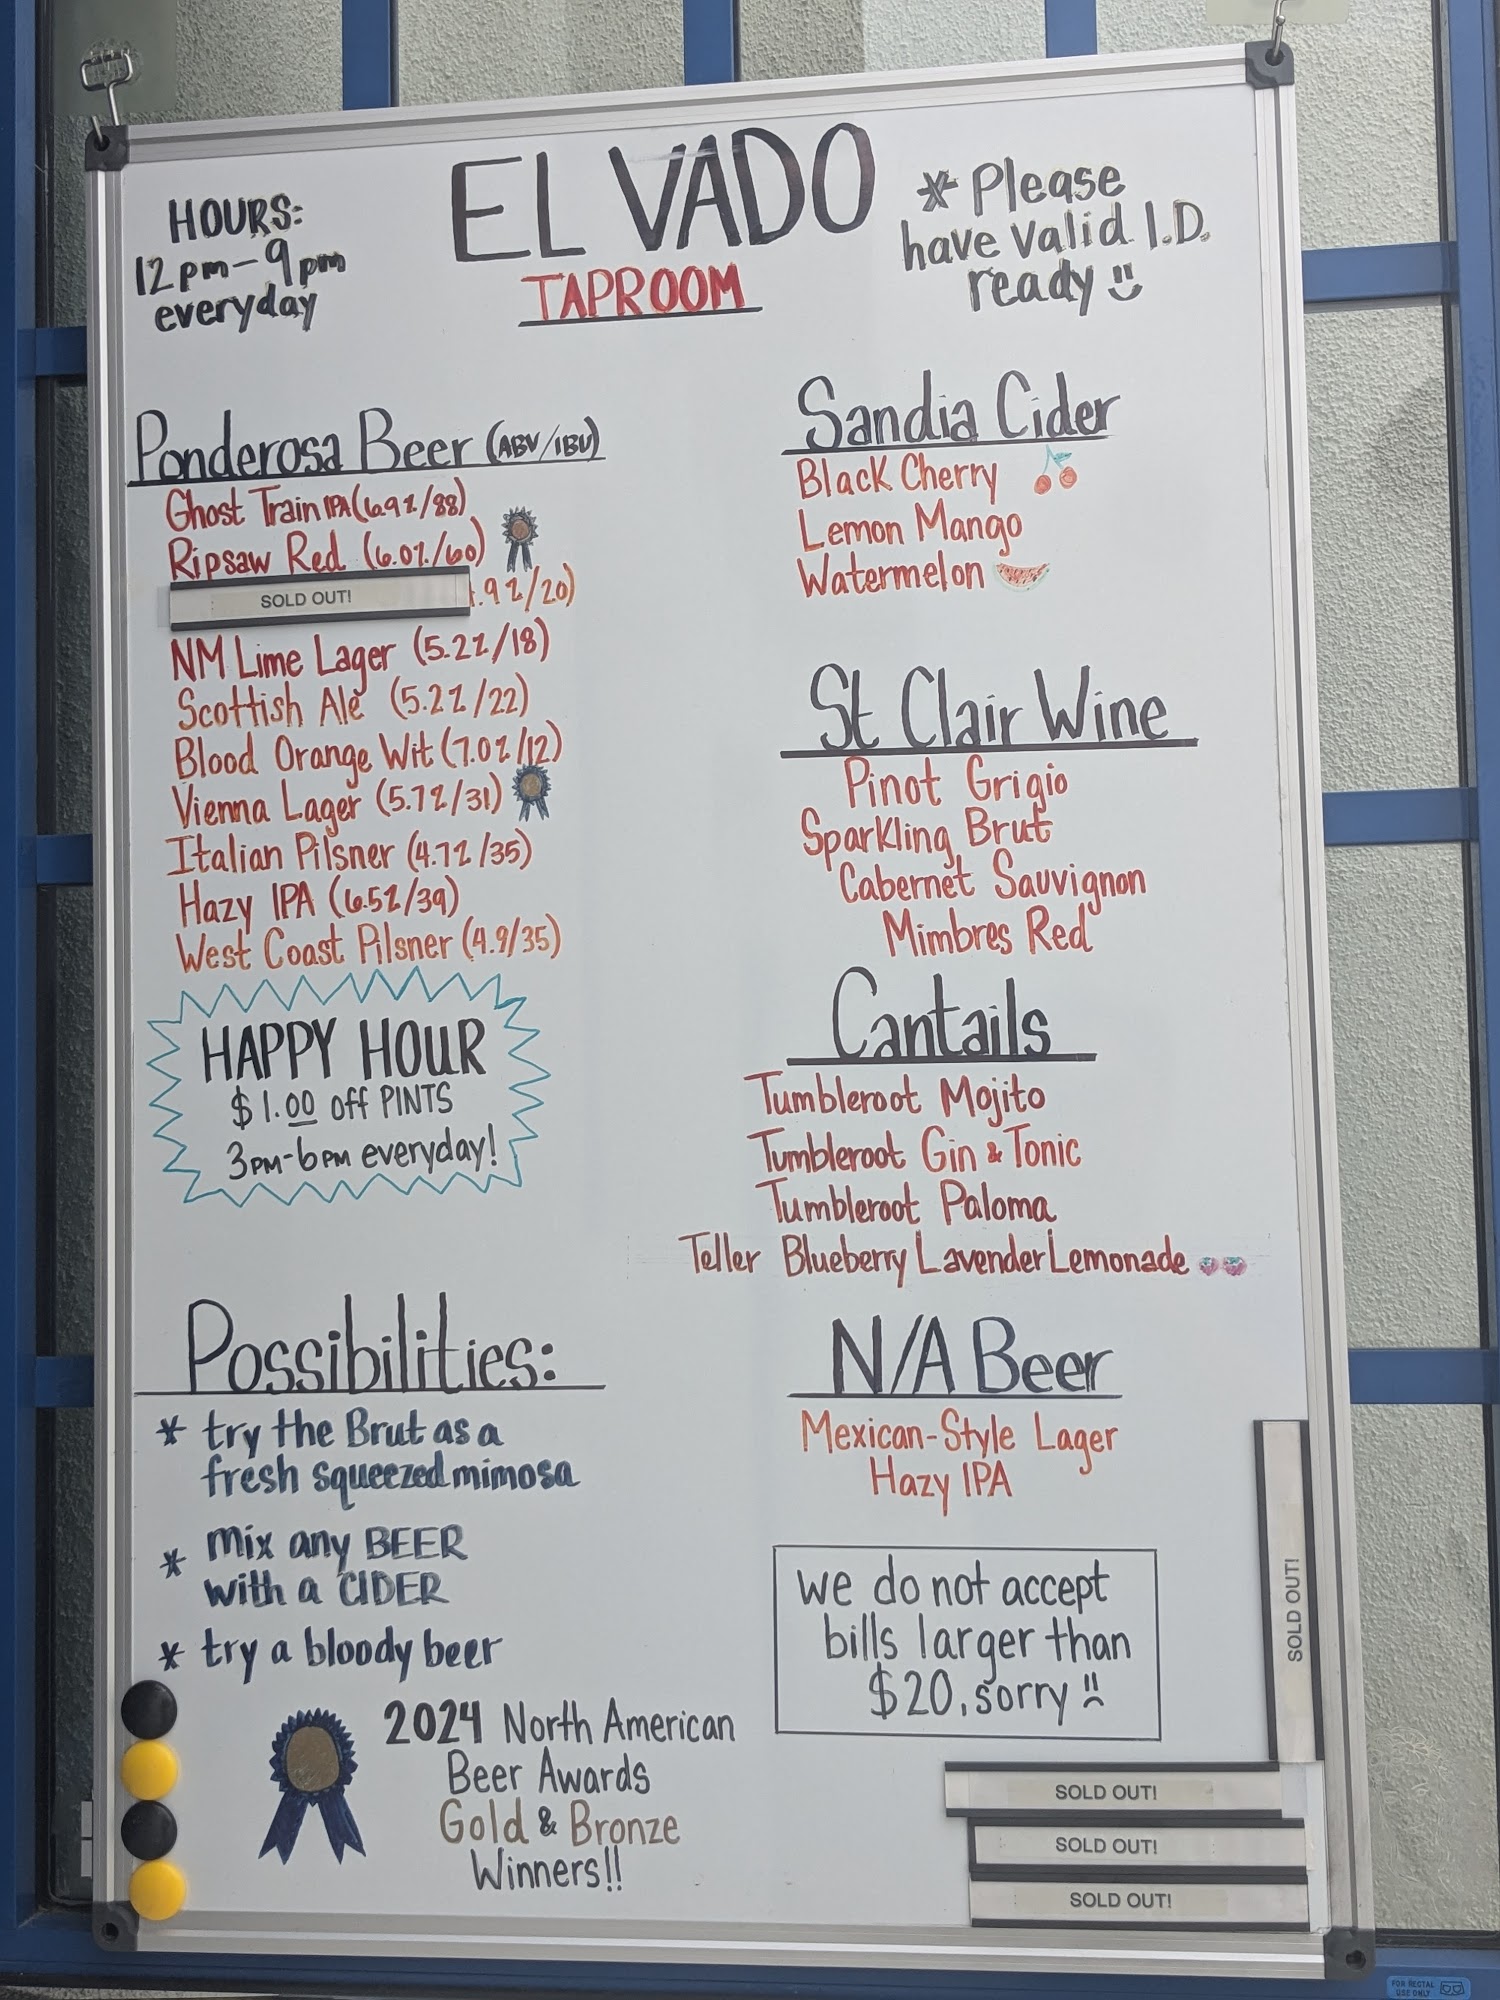 EL VADO
TAPROOM
HOURS:
12pm-9pm
everyday
* Please
have valid I.D.
ready
Ponderosa Beer (ABV/IBU)
Ghost Train IPA (6.9%/88)
Ripsaw Red (6.0%/60)
SOLD OUT! .9%/20)
NM Lime Lager (5.2%/18)
Scottish Ale (5.2%/22)
Blood Orange Wit (7.0%/12)
Vienna Lager (5.7%/31)
Italian Pilsner (4.7%/35)
Hazy IPA (6.5%/39)
West Coast Pilsner (4.9/35)
HAPPY HOUR
$1.00 off PINTS
3PM-6PM everyday!
Possibilities:
* try the Brut as a
fresh squeezed mimosa
* mix any BEER
with a CIDER
* try a bloody beer
2024 North American
Beer Awards
Gold & Bronze
Winners!!
Sandia Cider
Black Cherry
Lemon Mango
Watermelon
St Clair Wine
Pinot Grigio
Sparkling Brut
Cabernet Sauvignon
Mimbres Red
Cantails
Tumbleroot Mojito
Tumbleroot Gin & Tonic
Tumbleroot Paloma
Teller Blueberry Lavender Lemonade
N/A Beer
Mexican-Style Lager
Hazy IPA
we do not accept
bills larger than
$20, sorry
SOLD OUT!
SOLD OUT!
SOLD OUT!
SOLD OUT!
USE ONLY